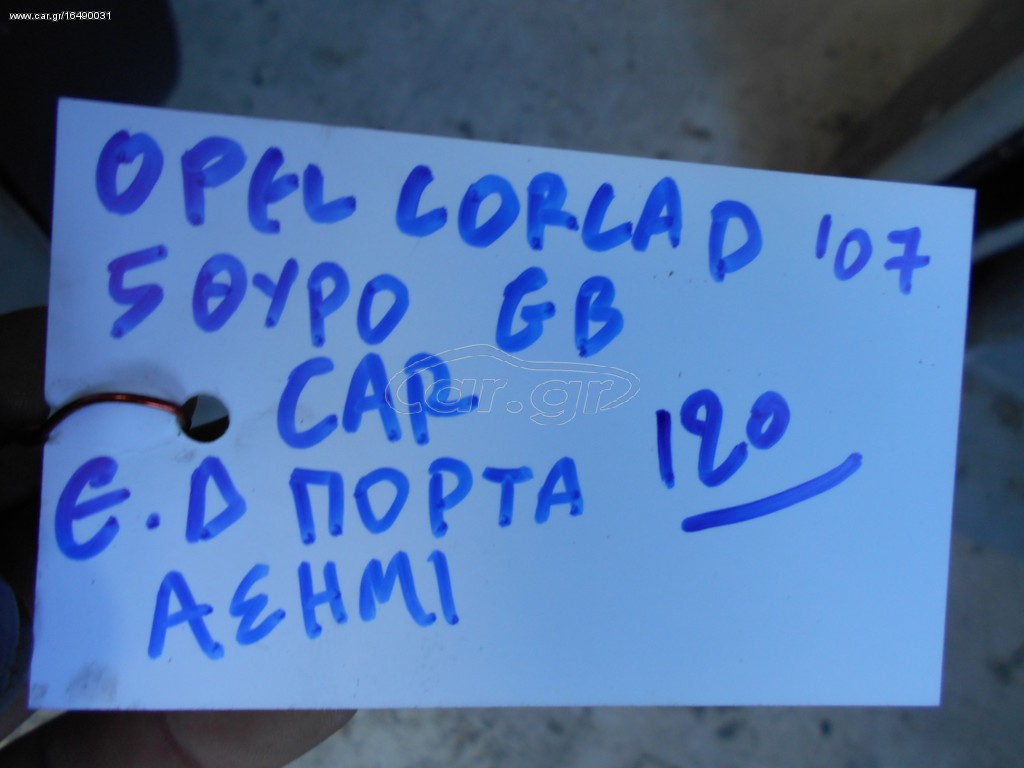 www.car.gr/16490031
OPEL CORCA D '07
5ΘΥΡΟ GB
CAR
car.gr
Ε.Δ ΠΟΡΤΑ
120
ΑΣΗΜΙ